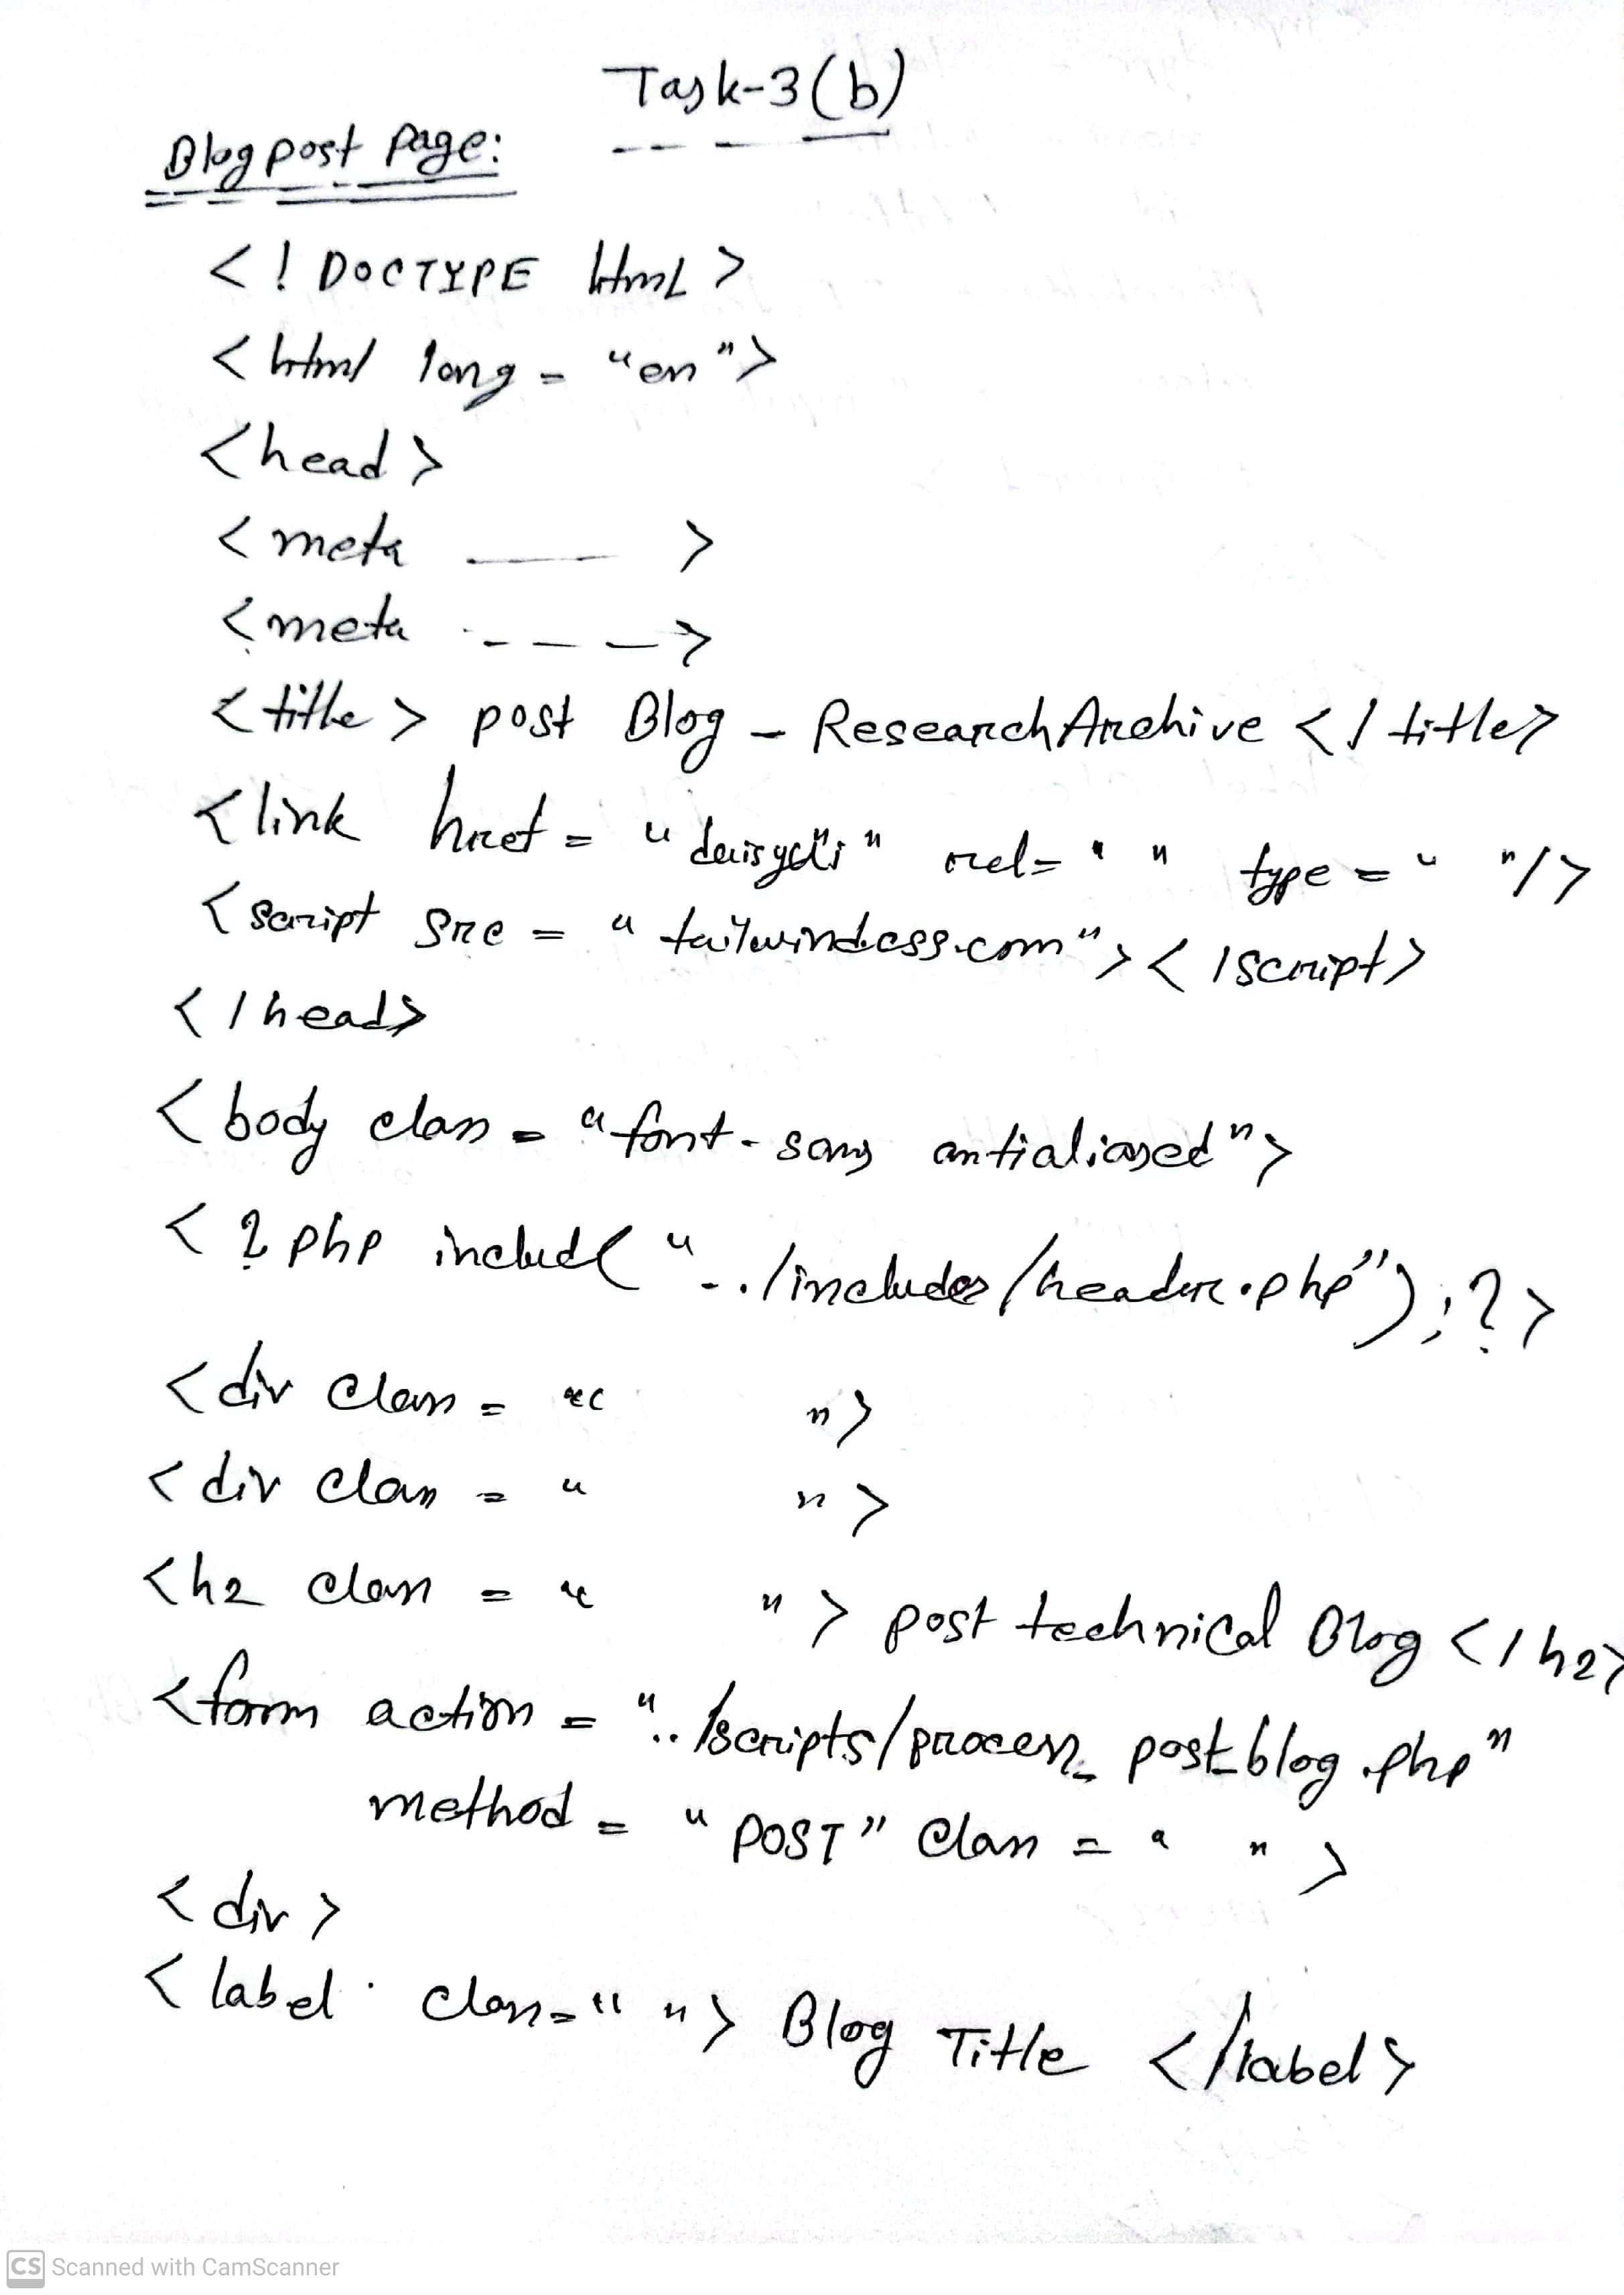 Task-3(b)
Blog post Page:
<! DOCTYPE html>
<html lang = "en">
<head>
<meta ——— >
<meta - - - - >
<title> post Blog - ResearchArchive </title>
<link href = "daisyui" rel= " " type = " "/>
<script src = "tailwindcss.com"></script>
</head>
<body class = "font-sans antialiased">
<?php include("../includes/header.php");?>
<div class = " ">
<div class = " ">
<h2 class = " "> post technical Blog </h2>
<form action = "../scripts/process_postblog.php"
method = "POST" class = " ">
<div>
<label class=" "> Blog Title </label>
CS Scanned with CamScanner